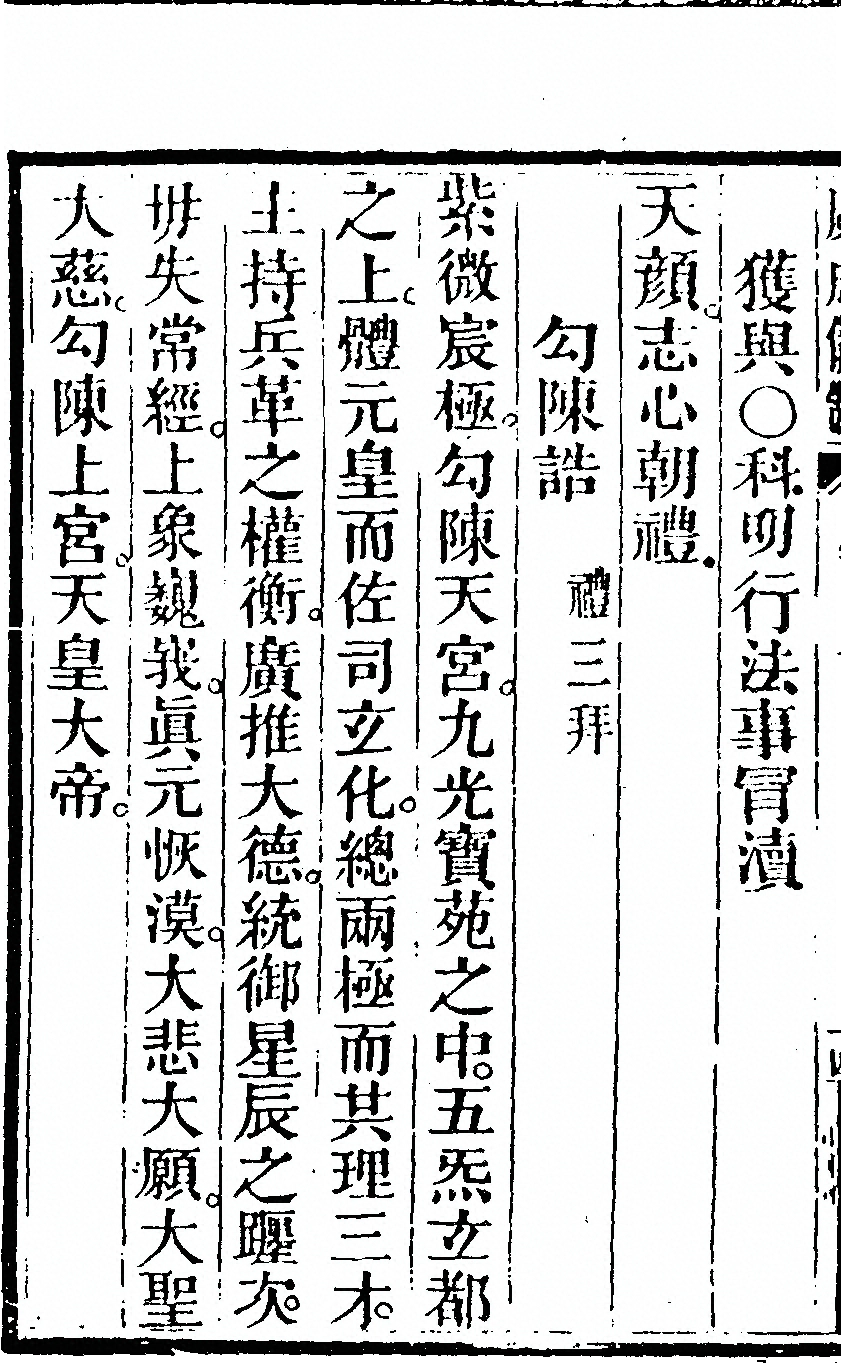 獲與〇科明行法事冐瀆
天顔。志心朝禮.
勾陳誥 禮三拜
紫微宸極。勾陳天宮。九光寶苑之中。五炁立都
之上。體元皇而佐司立化。總兩極而共理三才。
主持兵革之權衡。廣推大德。統御星辰之躔次。
毋失常經。上象巍我。眞元恢漠。大悲大願。大聖
大慈。勾陳上宮。天皇大帝。